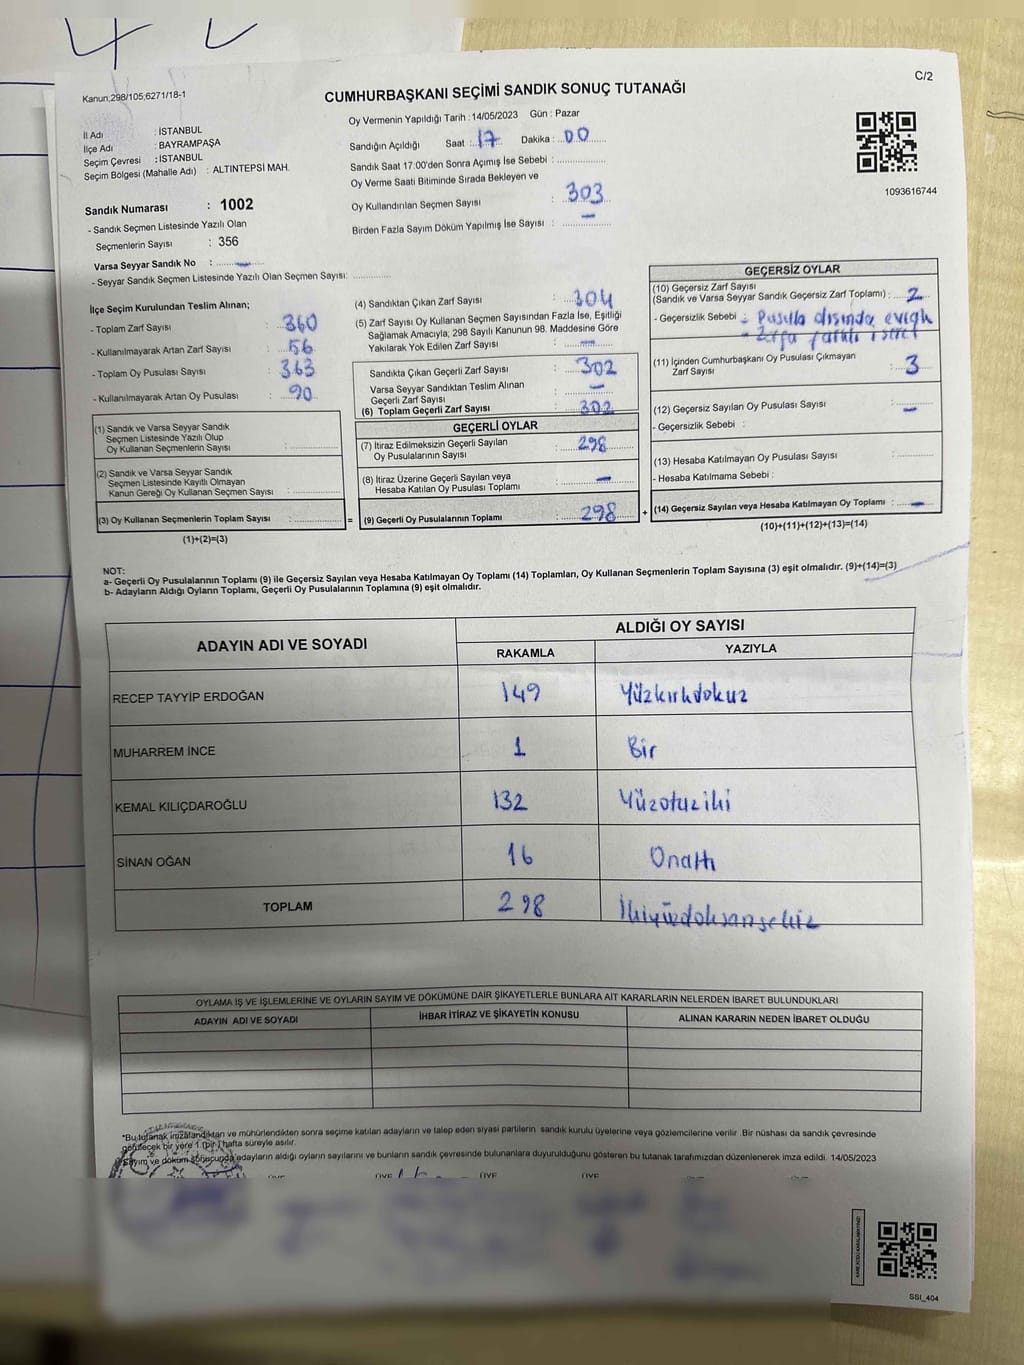 C/2
Kanun;298/105;6271/18-1
CUMHURBAŞKANI SEÇİMİ SANDIK SONUÇ TUTANAĞI
İl Adı : İSTANBUL
İlçe Adı : BAYRAMPAŞA
Seçim Çevresi : İSTANBUL
Seçim Bölgesi (Mahalle Adı) : ALTINTEPSİ MAH.
Sandık Numarası : 1002
- Sandık Seçmen Listesinde Yazılı Olan
Seçmenlerin Sayısı : 356
Varsa Seyyar Sandık No : -
- Seyyar Sandık Seçmen Listesinde Yazılı Olan Seçmen Sayısı:
Oy Vermenin Yapıldığı Tarih : 14/05/2023 Gün : Pazar
Sandığın Açıldığı Saat : 17 Dakika : 00
Sandık Saat 17:00'den Sonra Açımış İse Sebebi :
Oy Verme Saati Bitiminde Sırada Bekleyen ve
Oy Kullandırılan Seçmen Sayısı : 303
Birden Fazla Sayım Döküm Yapılmış İse Sayısı : -
1093616744
İlçe Seçim Kurulundan Teslim Alınan;
- Toplam Zarf Sayısı : 360
- Kullanılmayarak Artan Zarf Sayısı : 56
- Toplam Oy Pusulası Sayısı : 363
- Kullanılmayarak Artan Oy Pusulası : 90
(1) Sandık ve Varsa Seyyar Sandık
Seçmen Listesinde Yazılı Olup
Oy Kullanan Seçmenlerin Sayısı :
(2) Sandık ve Varsa Seyyar Sandık
Seçmen Listesinde Kayıtlı Olmayan
Kanun Gereği Oy Kullanan Seçmen Sayısı :
(3) Oy Kullanan Seçmenlerin Toplam Sayısı :
(1)+(2)=(3)
(4) Sandıktan Çıkan Zarf Sayısı : 304
(5) Zarf Sayısı Oy Kullanan Seçmen Sayısından Fazla İse, Eşitliği
Sağlamak Amacıyla; 298 Sayılı Kanunun 98. Maddesine Göre
Yakılarak Yok Edilen Zarf Sayısı : -
Sandıkta Çıkan Geçerli Zarf Sayısı : 302
Varsa Seyyar Sandıktan Teslim Alınan
Geçerli Zarf Sayısı : -
(6) Toplam Geçerli Zarf Sayısı : 302
GEÇERLİ OYLAR
(7) İtiraz Edilmeksizin Geçerli Sayılan
Oy Pusulalarının Sayısı : 298
(8) İtiraz Üzerine Geçerli Sayılan veya
Hesaba Katılan Oy Pusulası Toplamı : -
= (9) Geçerli Oy Pusulalarının Toplamı : 298
GEÇERSİZ OYLAR
(10) Geçersiz Zarf Sayısı
(Sandık ve Varsa Seyyar Sandık Geçersiz Zarf Toplamı) : 2
- Geçersizlik Sebebi : - Pusula dışında
(11) İçinden Cumhurbaşkanı Oy Pusulası Çıkmayan
Zarf Sayısı : 3
(12) Geçersiz Sayılan Oy Pusulası Sayısı : -
- Geçersizlik Sebebi :
(13) Hesaba Katılmayan Oy Pusulası Sayısı :
- Hesaba Katılmama Sebebi :
+ (14) Geçersiz Sayılan veya Hesaba Katılmayan Oy Toplamı : -
(10)+(11)+(12)+(13)=(14)
NOT:
a- Geçerli Oy Pusulalarının Toplamı (9) ile Geçersiz Sayılan veya Hesaba Katılmayan Oy Toplamı (14) Toplamları, Oy Kullanan Seçmenlerin Toplam Sayısına (3) eşit olmalıdır. (9)+(14)=(3)
b- Adayların Aldığı Oyların Toplamı, Geçerli Oy Pusulalarının Toplamına (9) eşit olmalıdır.
ADAYIN ADI VE SOYADI ALDIĞI OY SAYISI
RAKAMLA YAZIYLA
RECEP TAYYİP ERDOĞAN 149 Yüzkırkdokuz
MUHARREM İNCE 1 Bir
KEMAL KILIÇDAROĞLU 132 Yüzotuziki
SİNAN OĞAN 16 Onaltı
TOPLAM 298 İkiyüzdoksansekiz
OYLAMA İŞ VE İŞLEMLERİNE VE OYLARIN SAYIM VE DÖKÜMÜNE DAİR ŞİKAYETLERLE BUNLARA AİT KARARLARIN NELERDEN İBARET BULUNDUKLARI
ADAYIN ADI VE SOYADI İHBAR İTİRAZ VE ŞİKAYETİN KONUSU ALINAN KARARIN NEDEN İBARET OLDUĞU
*Bu tutanak imzalandıktan ve mühürlendikten sonra seçime katılan adayların ve talep eden siyasi partilerin sandık kurulu üyelerine veya gözlemcilerine verilir .Bir nüshası da sandık çevresinde
görülecek bir yere 1 (bir ) hafta süreyle asılır.
Sayım ve döküm sonucunda adayların aldığı oyların sayılarını ve bunların sandık çevresinde bulunanlara duyurulduğunu gösteren bu tutanak tarafımızdan düzenlenerek imza edildi. 14/05/2023
ÜYE ÜYE ÜYE ÜYE ÜYE ÜYE
SSI_404